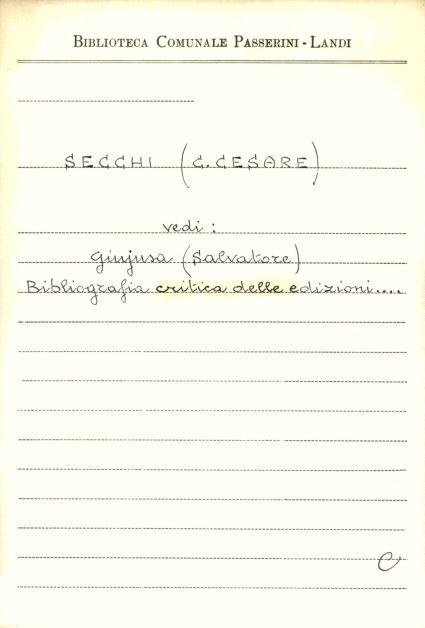 BIBLIOTECA COMUNALE PASSERINI - LANDI
SECCHI (C. CESARE)
vedi :
Giujusa (Salvatore)
Bibliografia critica delle edizioni....
C